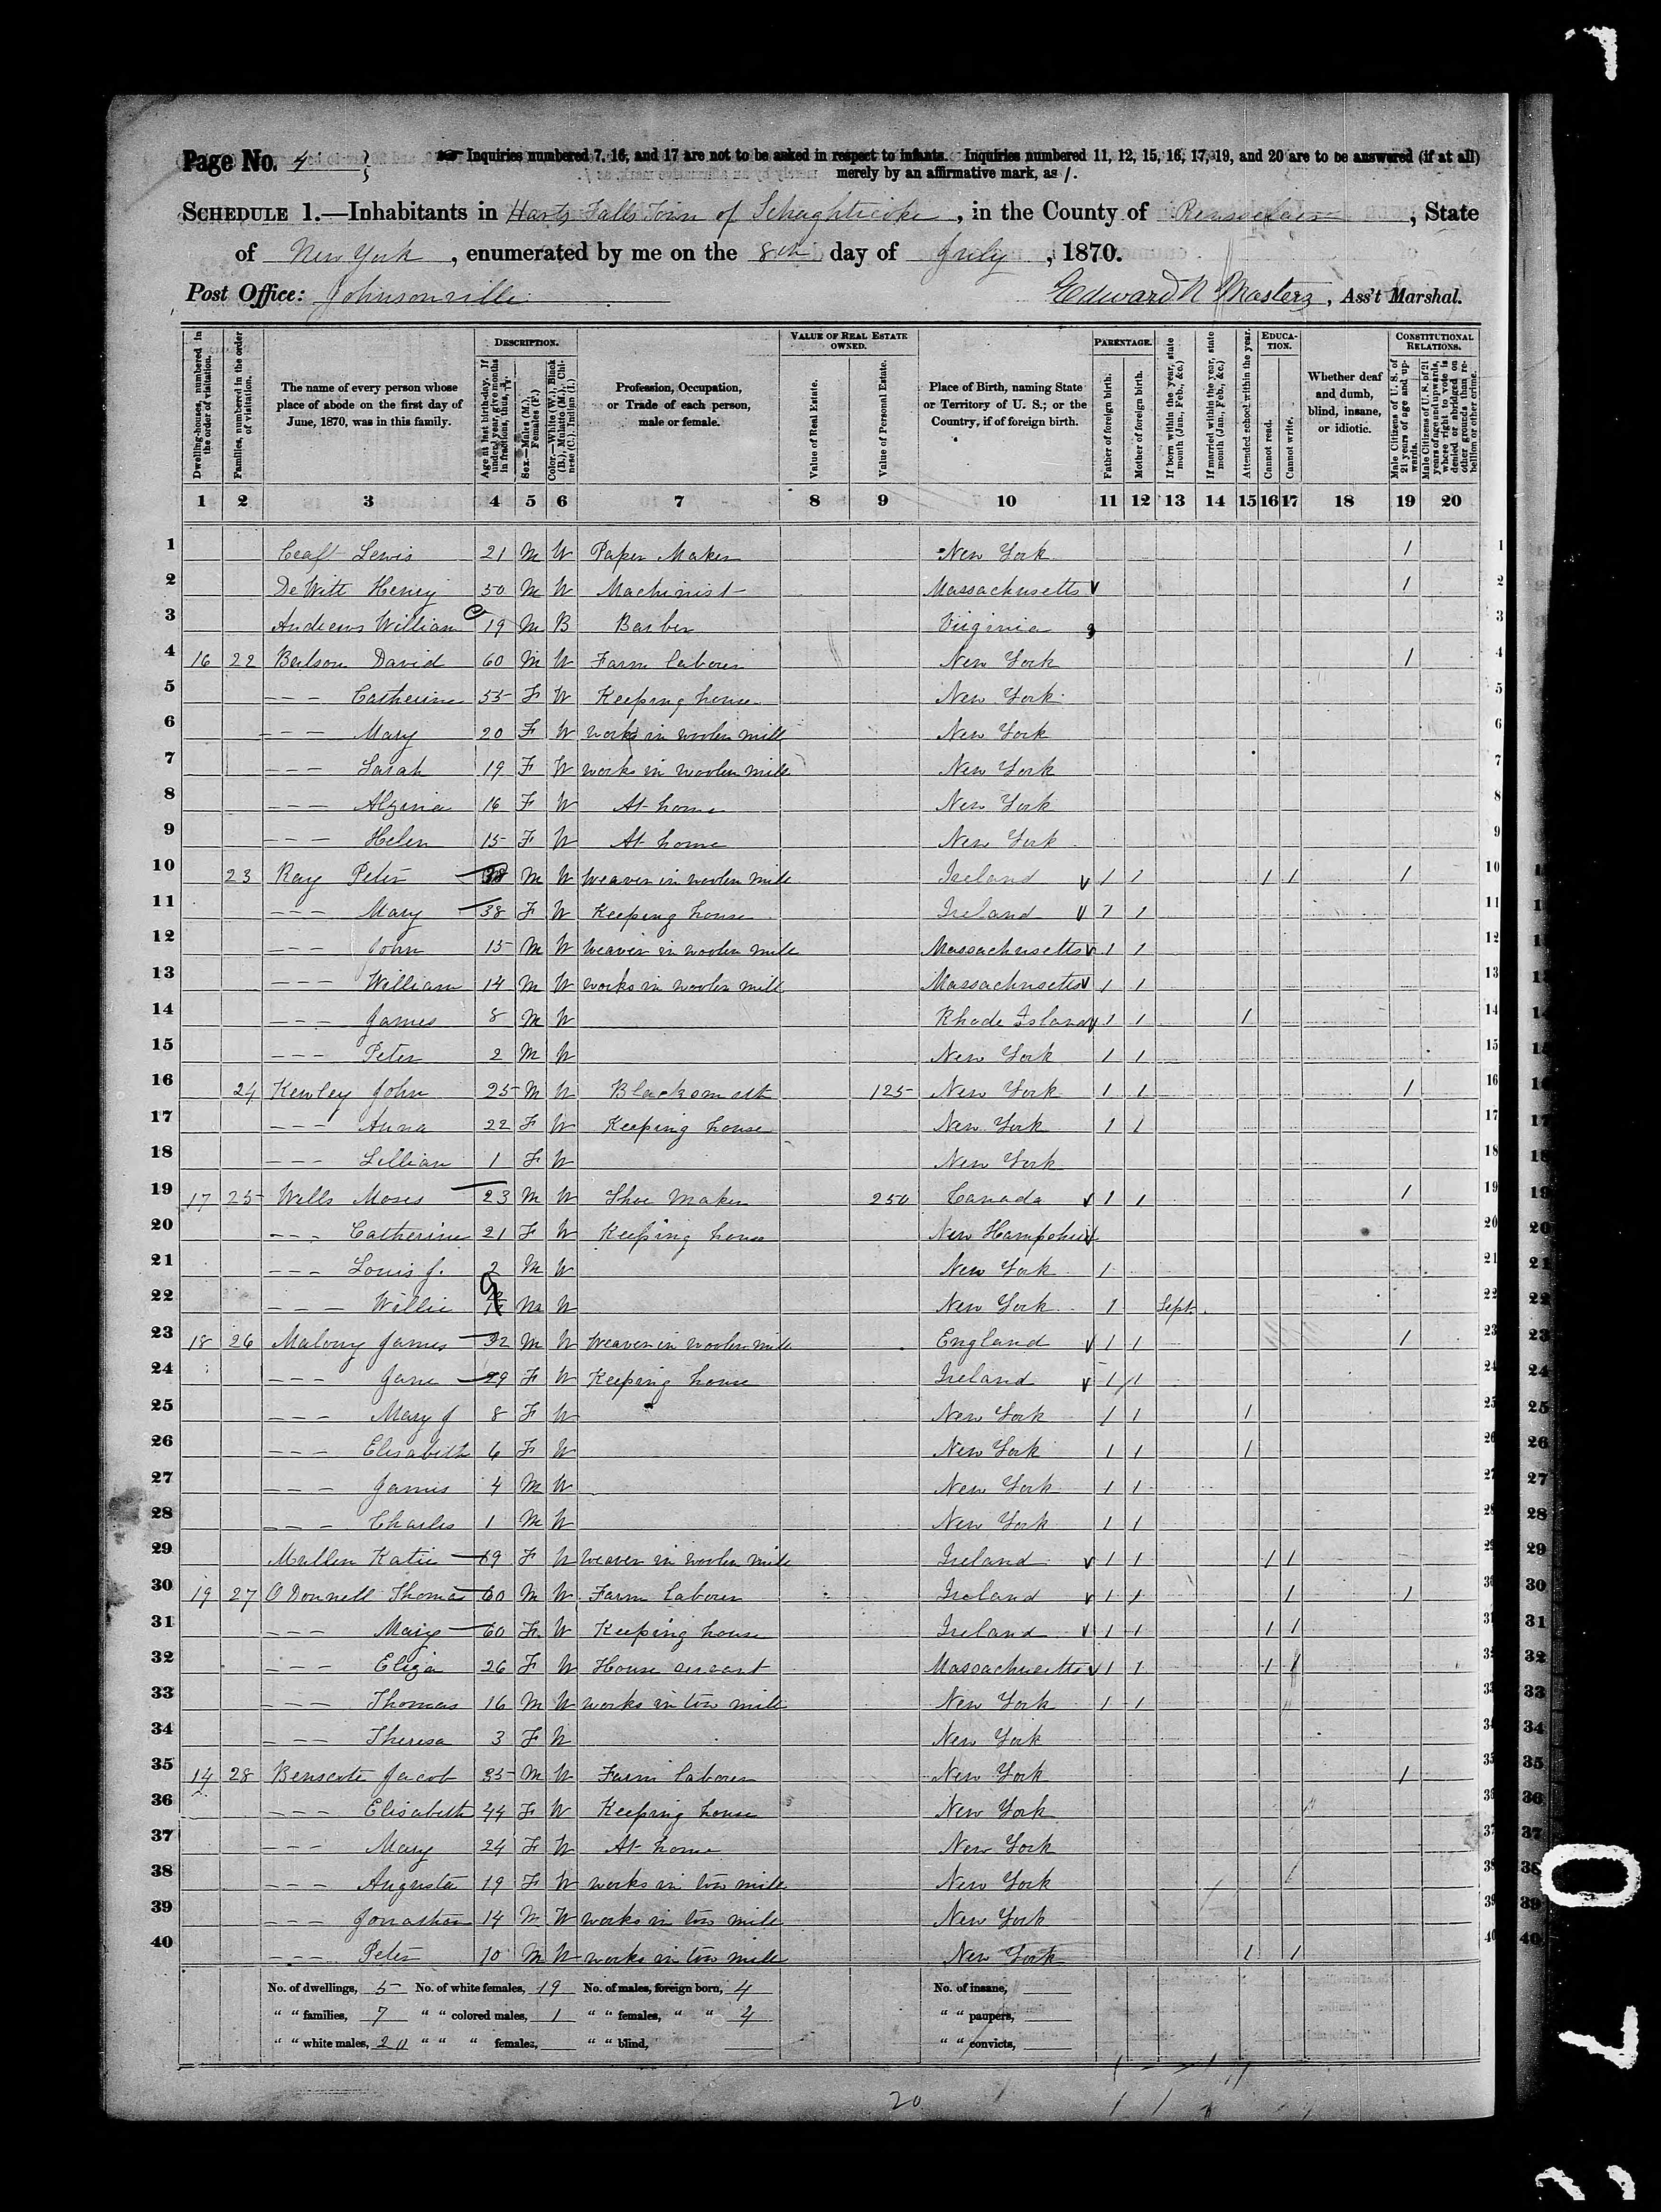 Page No. 4
Inquiries numbered 7, 16, and 17 are not to be asked in respect to infants. Inquiries numbered 11, 12, 15, 16, 17, 19, and 20 are to be answered (if at all)
merely by an affirmative mark, as /.
SCHEDULE 1.—Inhabitants in Harts Falls Town of Schaghticoke, in the County of Rensselaer, State
of New York, enumerated by me on the 8th day of July, 1870.
Post Office: Johnsonville Edward N Masters, Ass't Marshal.
Dwelling-houses, numbered in the order of visitation.
Families, numbered in the order of visitation.
The name of every person whose place of abode on the first day of June, 1870, was in this family.
DESCRIPTION.
Age at last birth-day. If under 1 year, give months in fractions, thus,
Sex.—Males (M.), Females (F.)
Color.—White (W.), Black (B.), Mulatto (M.), Chinese (C.), Indian (I.)
Profession, Occupation, or Trade of each person, male or female.
VALUE OF REAL ESTATE OWNED.
Value of Real Estate.
Value of Personal Estate.
Place of Birth, naming State or Territory of U. S.; or the Country, if of foreign birth.
PARENTAGE.
Father of foreign birth.
Mother of foreign birth.
If born within the year, state month (Jan., Feb., &c.)
If married within the year, state month (Jan., Feb., &c.)
Attended school within the year.
EDUCATION.
Cannot read.
Cannot write.
Whether deaf and dumb, blind, insane, or idiotic.
CONSTITUTIONAL RELATIONS.
Male Citizens of U. S. of 21 years of age and upwards.
Male Citizens of U. S. of 21 years of age and upwards, where right to vote is denied or abridged on other grounds than rebellion or other crime.
1 2 3 4 5 6 7 8 9 10 11 12 13 14 15 16 17 18 19 20
1 Lewis 21 M W Paper Maker New York 1 1
2 DeWitt Henry 50 M W Machinist Massachusetts 1 2
3 Andrews William 19 M B Barber Virginia 3
4 16 22 Batson David 60 M W Farm laborer New York 1 4
5 --- Catherine 55 F W Keeping house New York 5
6 --- Mary 20 F W works in woolen mill New York 6
7 --- Sarah 19 F W works in woolen mill New York 7
8 --- Algina 16 F W At home New York 8
9 --- Helen 15 F W At home New York 9
10 23 Ray Peter 38 M W Weaver in woolen mill Ireland 1 1 1 1 1
11 --- Mary 38 F W Keeping house Ireland 1 1 11
12 --- John 15 M W Weaver in woolen mill Massachusetts 1 1 12
13 --- William 14 M W works in woolen mill Massachusetts 1 1 13
14 --- James 8 M W Rhode Island 1 1 1 14
15 --- Peter 2 M W New York 1 1 15
16 24 Kewley John 25 M W Blacksmith 125 New York 1 1 1 16
17 --- Anna 22 F W Keeping house New York 1 1 17
18 --- Lillian 1 F W New York 18
19 17 25 Wells Moses 23 M W Shoe Maker 250 Canada 1 1 1 19
20 --- Catherine 21 F W Keeping house New Hampshire 20
21 --- Louis J. 2 M W New York 1 21
22 --- Willie M W New York 1 Sept. 22
23 18 26 Malony James 32 M W Weaver in woolen mill England 1 1 1 23
24 --- Jane 29 F W Keeping house Ireland 1 1 24
25 --- Mary J 8 F W New York 1 1 1 25
26 --- Elisabeth 6 F W New York 1 1 1 26
27 --- James 4 M W New York 1 1 27
28 --- Charles 1 M W New York 1 1 28
29 Mullen Katie 19 F W Weaver in woolen mill Ireland 1 1 1 1 29
30 19 27 O Donnell Thomas 60 M W Farm laborer Ireland 1 1 1 1 30
31 --- Mary 60 F W Keeping house Ireland 1 1 1 1 31
32 --- Eliza 26 F W House servant Massachusetts 1 1 1 1 32
33 --- Thomas 16 M W works in tow mill New York 1 1 33
34 --- Theresa 3 F W New York 34
35 14 28 Benscote Jacob 35 M W Farm laborer New York 1 35
36 --- Elisabeth 44 F W Keeping house New York 36
37 --- Mary 24 F W At home New York 37
38 --- Augusta 19 F W works in tow mill New York 38
39 --- Jonathan 14 M W works in tow mill New York 39
40 --- Peter 10 M W works in tow mill New York 1 1 40
No. of dwellings, 5 No. of white females, 19 No. of males, foreign born, 4 No. of insane,
" " families, 7 " " colored males, 1 " " females, " " 4 " " paupers,
" " white males, 20 " " " females, " " blind, " " convicts,
20